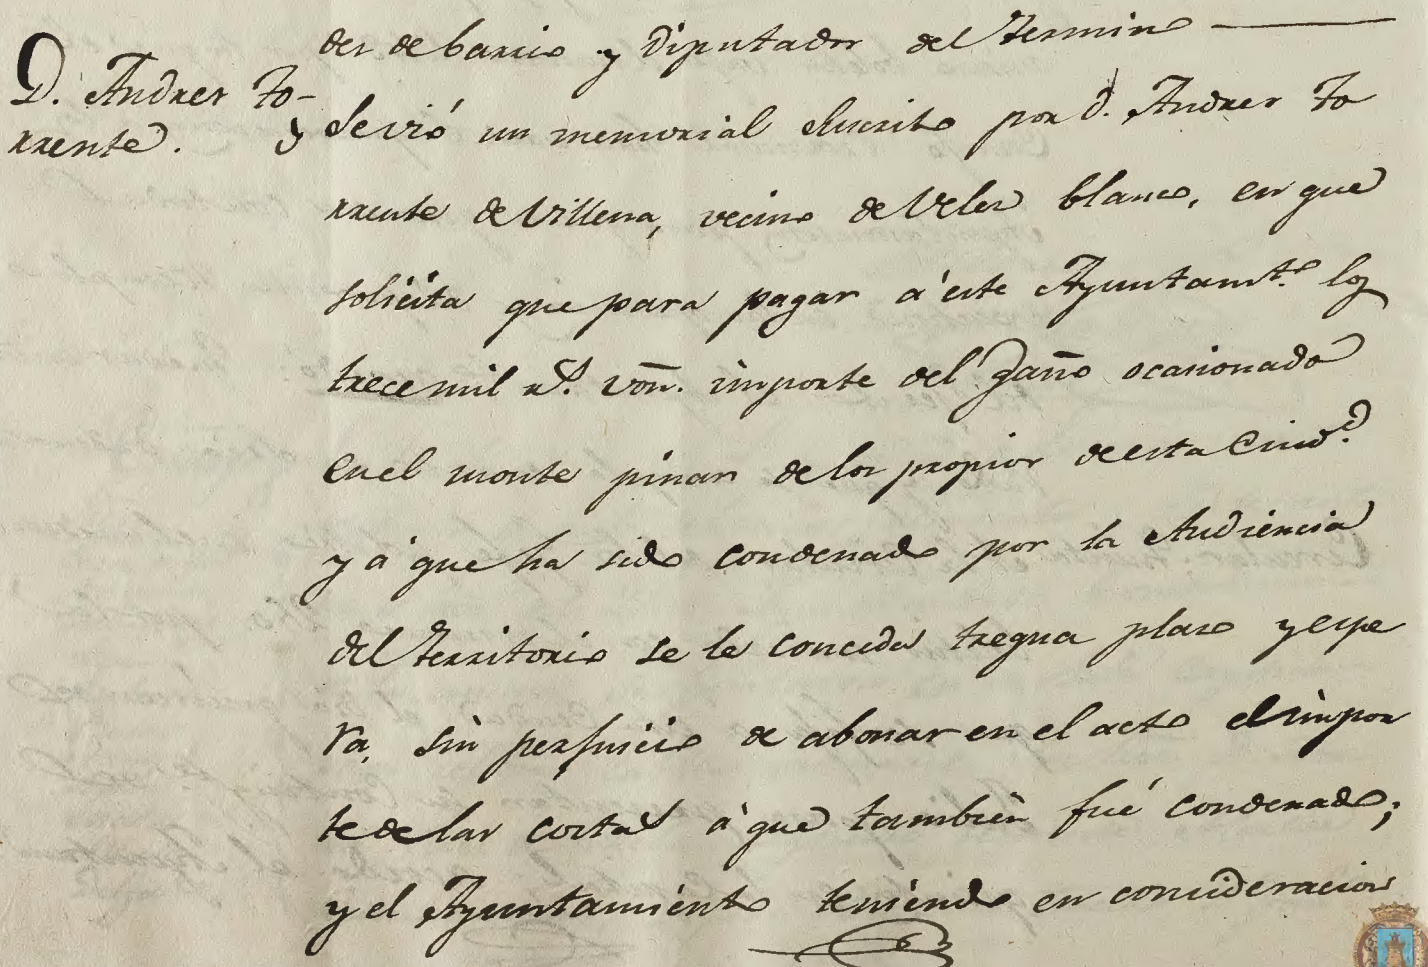 des de barrio y Diputados del termino
D. Andres To-
rrente.
Se vió un memorial escrito por D. Andres To
rrente de Villena, vecino de Velez blanco, en que
solicita que para pagar á este Ayuntamto. los
trece mil rs. von. importe del daño ocasionado
en el monte pinar de los propios de esta Ciudd.
y á que ha sido condenado por la Audiencia
del territorio se le conceda tregua plaso y espe
ra, sin perjuicio de abonar en el acto el impor
te de las costas á que tambien fué condenado;
y el Ayuntamiento teniendo en consideracion